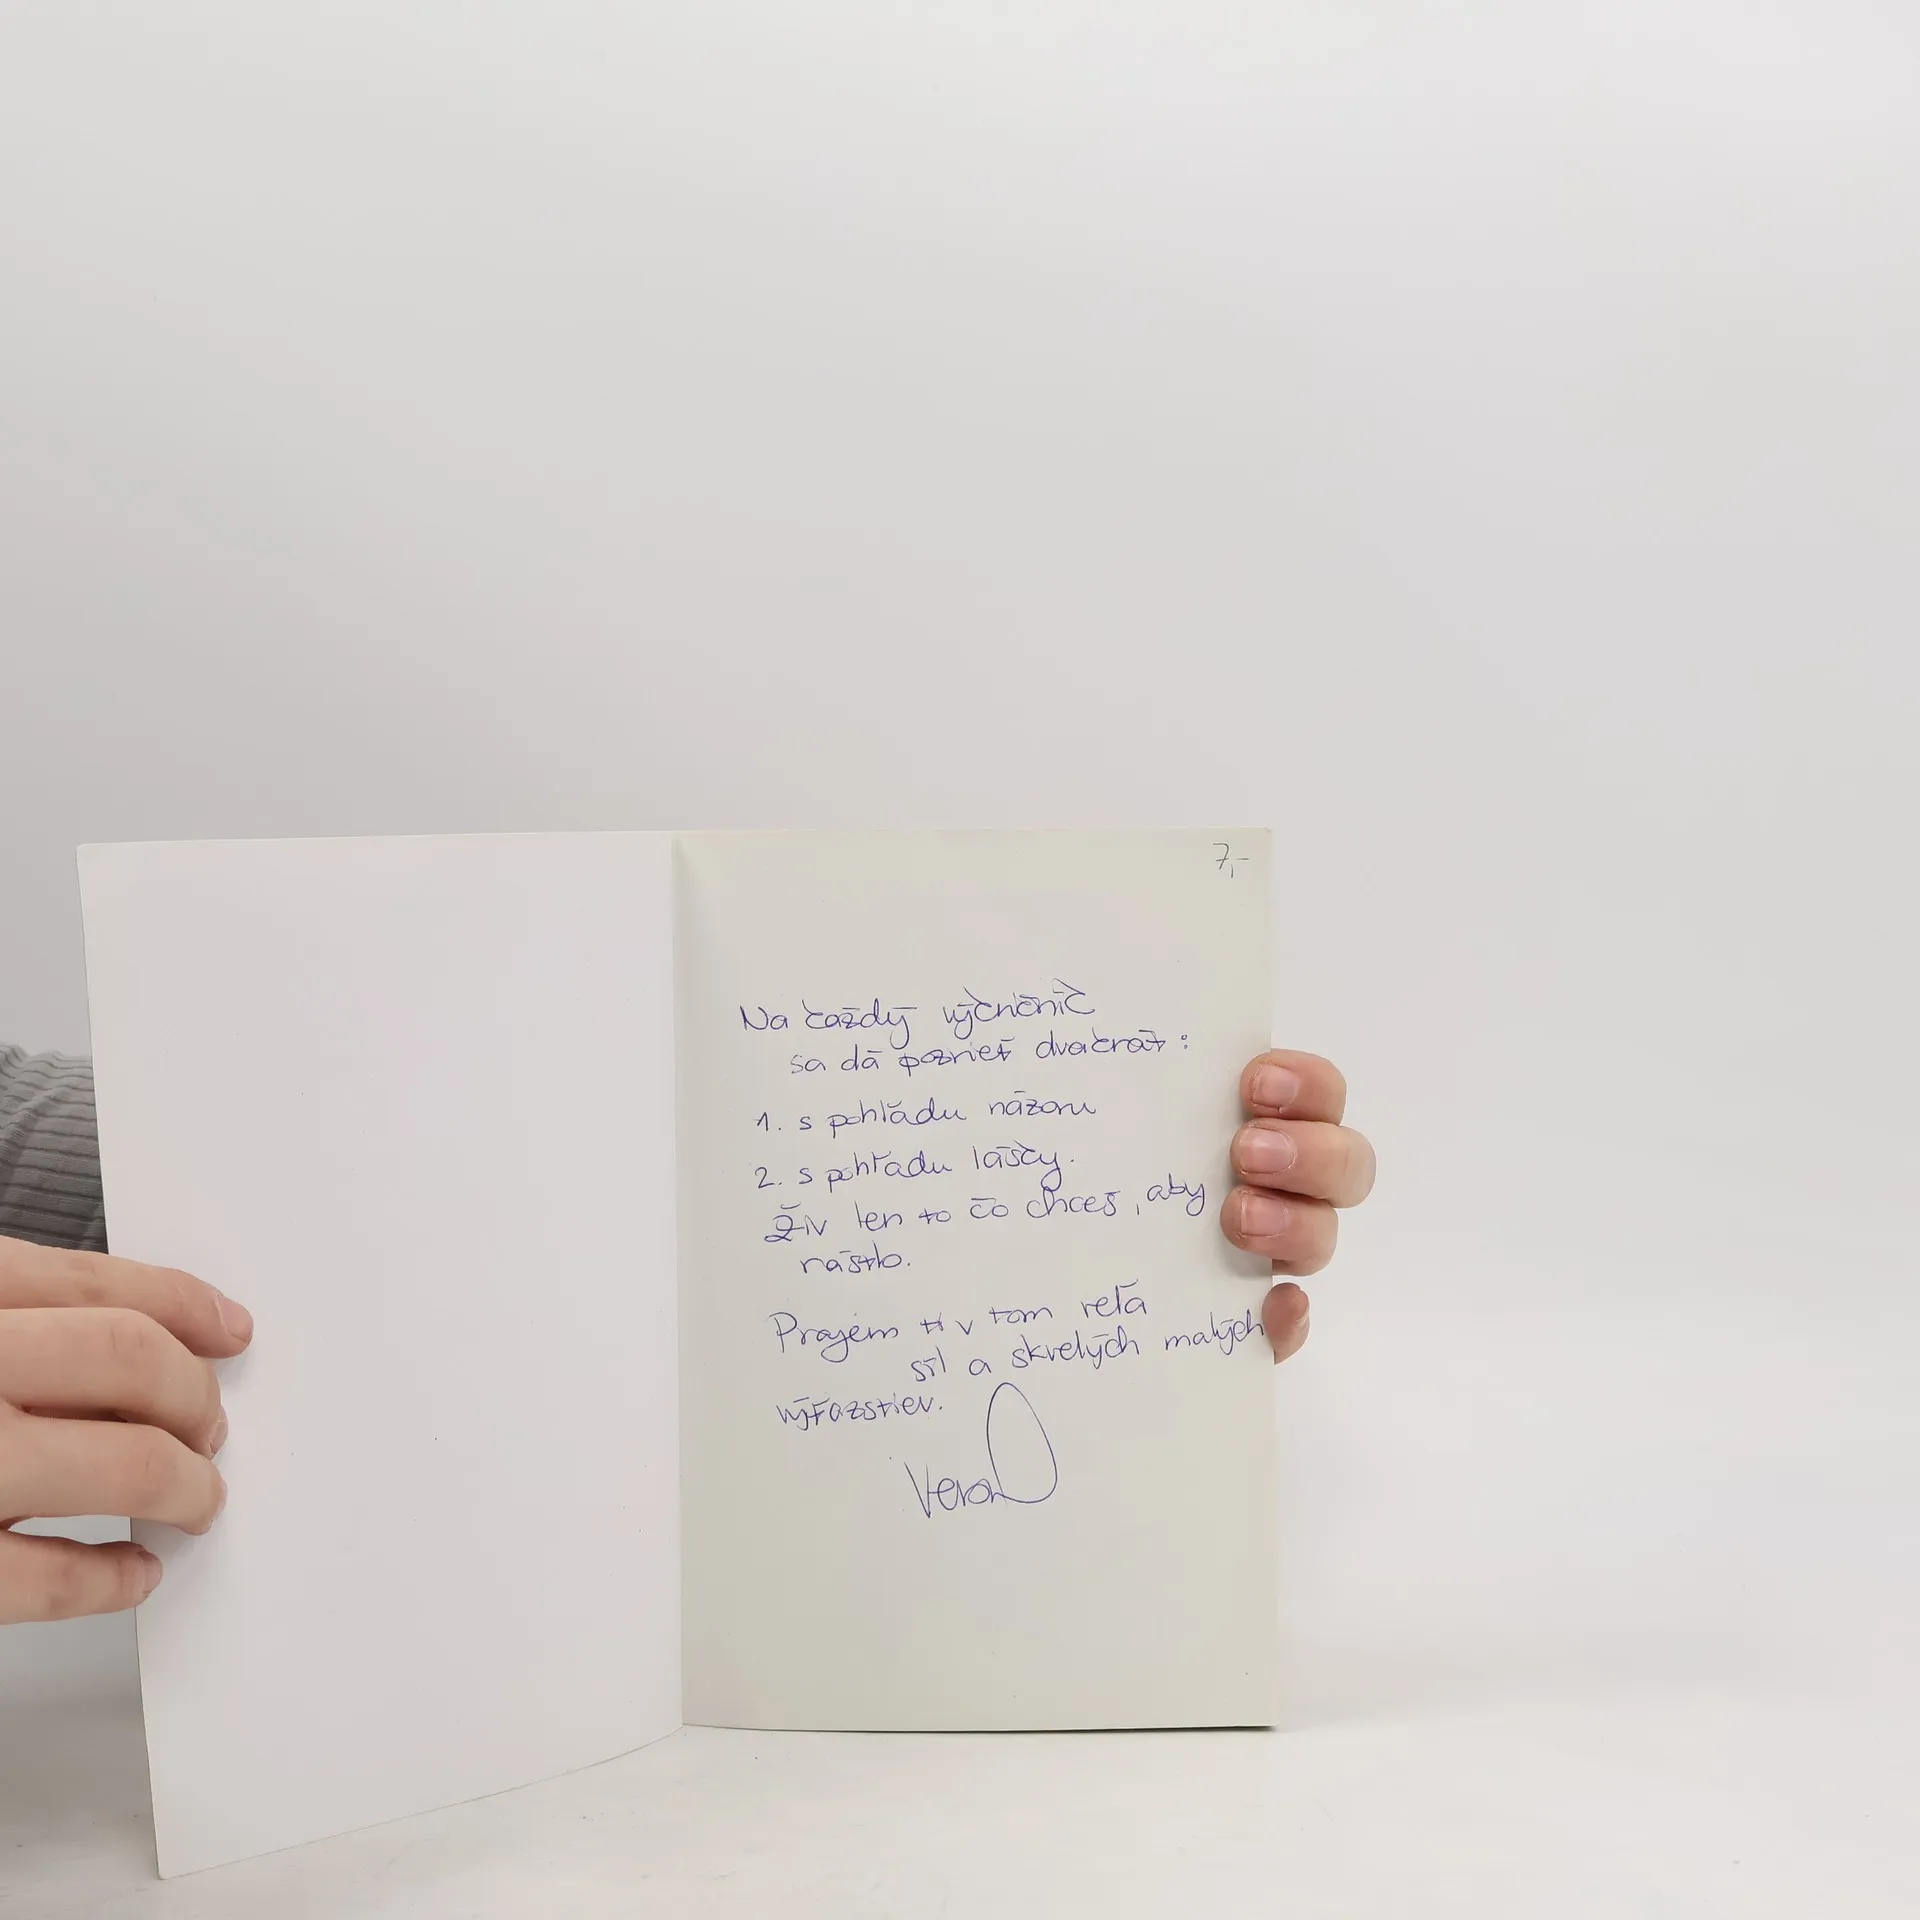 7,-
Na každý výkričník
sa dá pozrieť dvakrát:
1. s pohľadu názoru
2. s pohľadu lásky.
Živ len to čo chceš, aby
rástlo.
Prajem ti v tom veľa
síl a skvelých malých
víťazstiev.
Vera